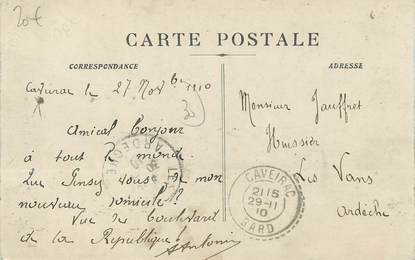 20€
CARTE POSTALE
CORRESPONDANCE
ADRESSE
Caveirac le 27 Nov bre 1910
Amical Bonjour
à tout le monde.
Que Pensez vous de mon
nouveau domicile??
Vue du Boulevard
de la République!
Antonin
Monsieur Jauffret
Huissier
Les Vans
Ardèche
ARDECHE
CAVEIRAC
21 15
29-11
10
GARD